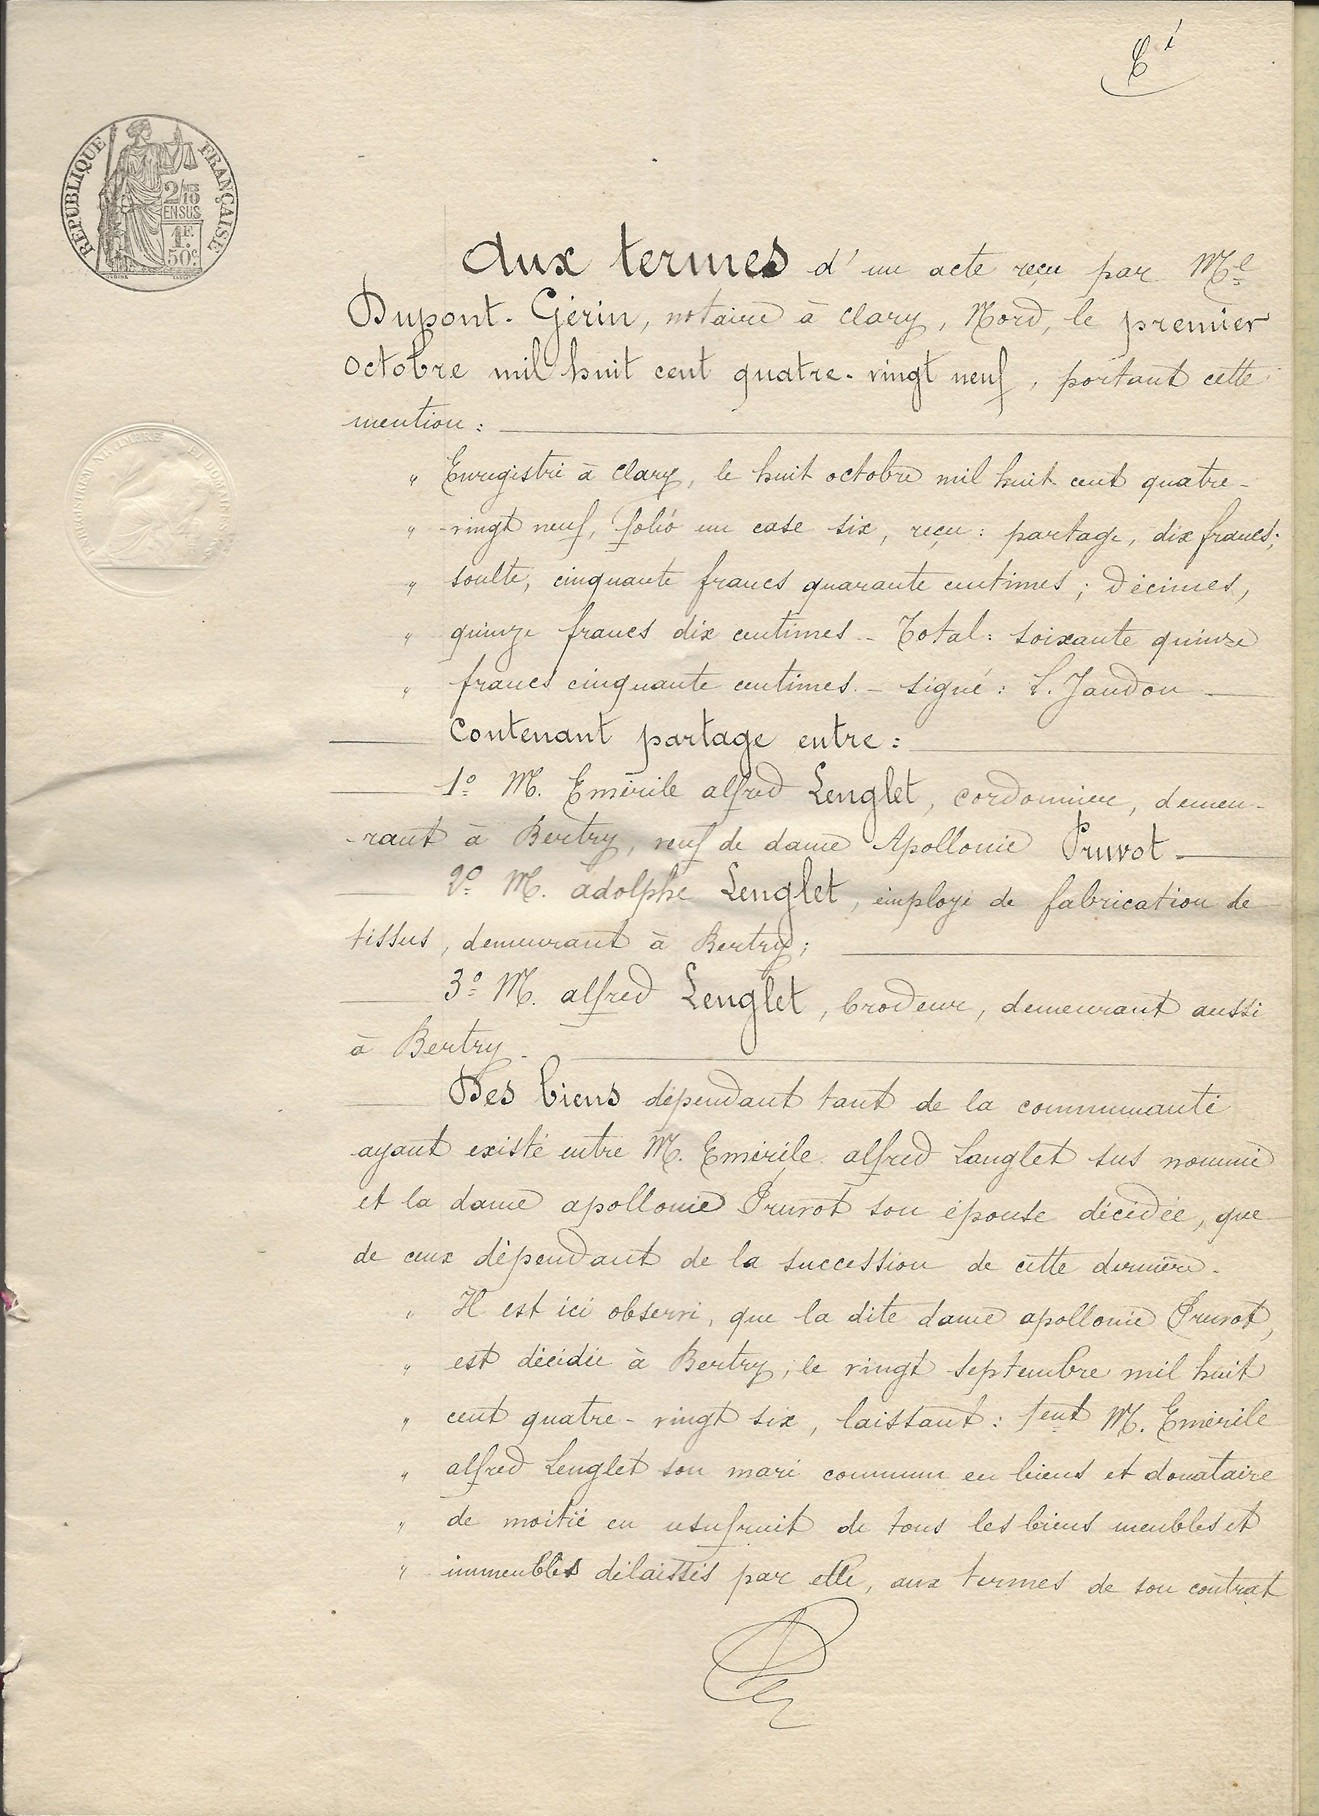 RÉPUBLIQUE FRANÇAISE
2/10 MES
EN SUS
1F.
50c.
Aux termes d'un acte reçu par Me
Dupont-Gérin, notaire à Clary, Nord, le premier
octobre mil huit cent quatre-vingt neuf, portant cette
mention :
" Enregistré à Clary, le huit octobre mil huit cent quatre-
" -vingt neuf, folio un case six, reçu : partage, dix francs ;
" soulte, cinquante francs quarante centimes ; Décimes,
" quinze francs dix centimes - Total : soixante quinze
" francs cinquante centimes. - signé : L. Jaudon
Contenant partage entre :
1o M. Emérile alfred Lenglet, cordonnier, demeu-
-rant à Bertry, veuf de dame Apollonie Pruvot -
2o M. adolphe Lenglet, employé de fabrication de
tissus, demeurant à Bertry ;
3o M. alfred Lenglet, brodeur, demeurant aussi
à Bertry -
Des biens dépendant tant de la communauté
ayant existé entre M. Emérile alfred Langlet sus nommé
et la dame apollonie Pruvot son épouse décédée, que
de ceux dépendant de la succession de cette dernière.
" Il est ici observé, que la dite dame apollonie Pruvot,
" est décédée à Bertry, le vingt septembre mil huit
" cent quatre-vingt six, laissant : 1ent M. Emérile
" alfred Lenglet son mari commun en biens et donataire
" de moitié en usufruit de tous les biens meubles et
" immeubles délaissés par elle, aux termes de son contrat